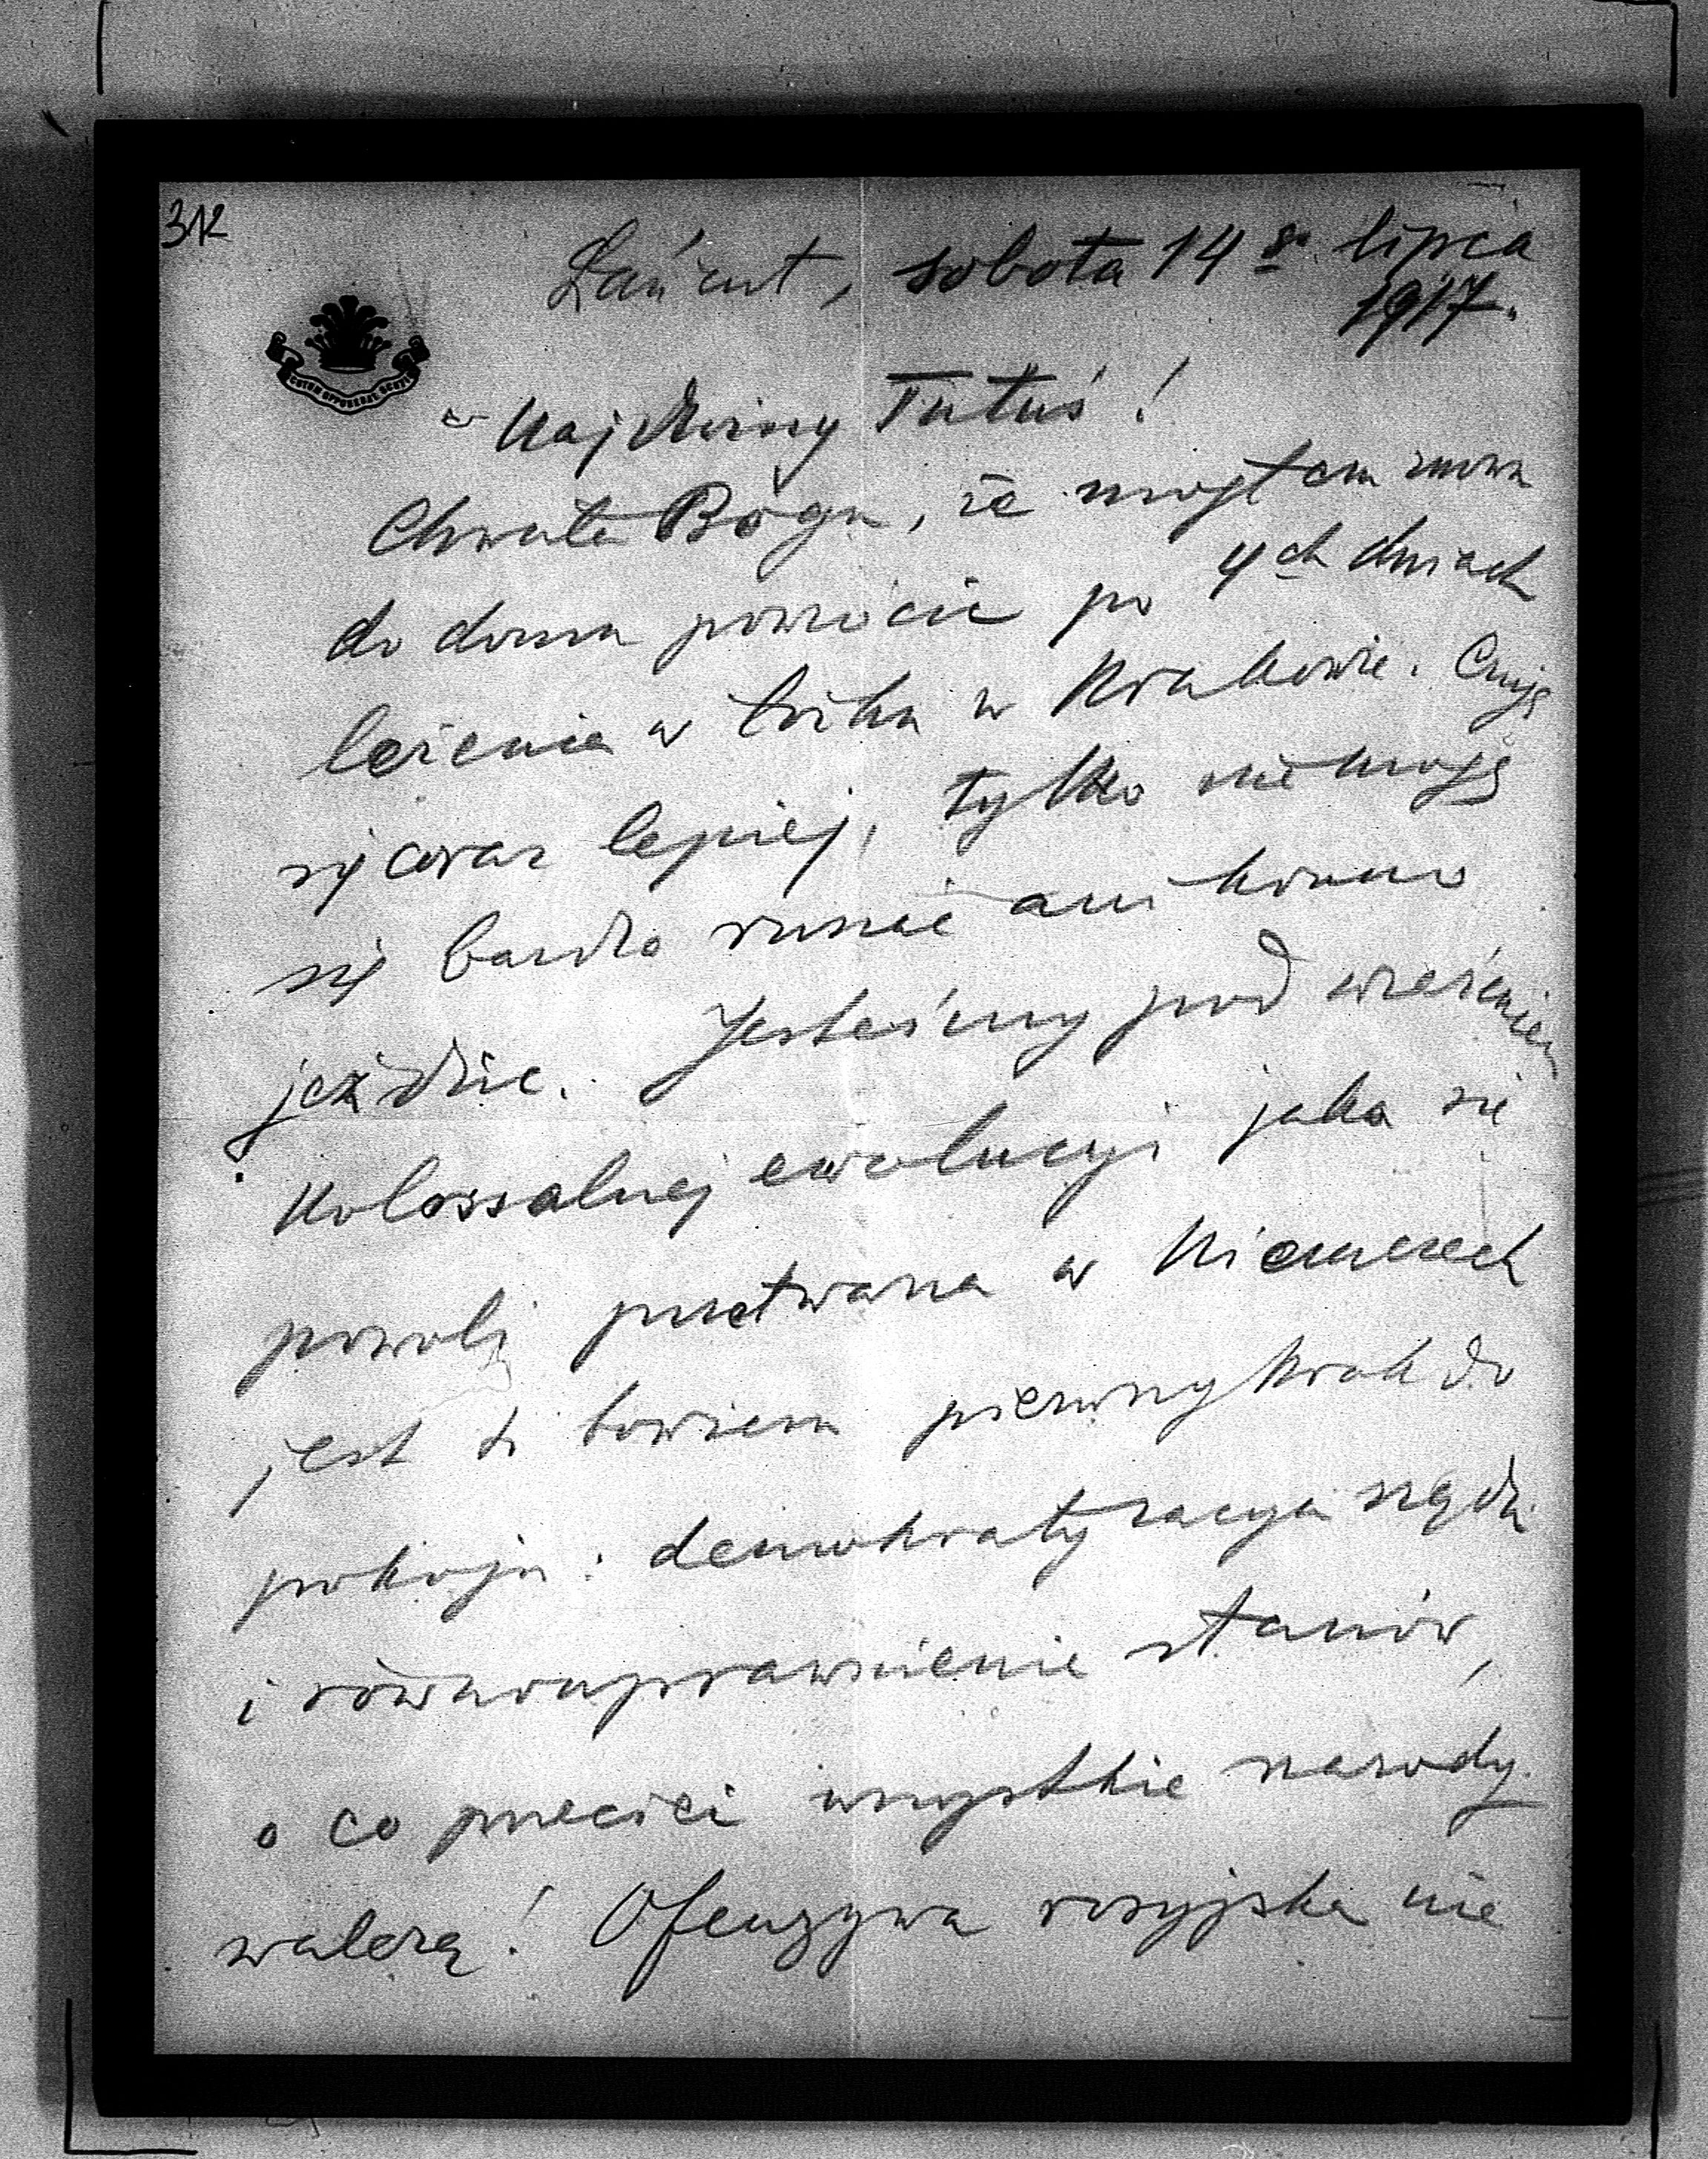 312
Łańcut, sobota 14go lipca
1917.
CUTUM OPPONEBAT SCUTI
Najdroższy Tutuś!
Chwała Bogu, że mogłam znowu
do domu powrócić po 4ch dniach
leżenia w łóżku w Krakowie. Czuję
się coraz lepiej, tylko nie mogę
się bardzo ruszać ani konno
jeździć. Jesteśmy pod wrażeniem
kolossalnej ewolucyi jaka się
powoli przetwarza w Niemczech
jest to bowiem pierwszy krok do
pokoju: demokratyzacya rządu
i równouprawnienie stanów,
o co przecież wszystkie narody
walczą! Ofenzywa rosyjska nie